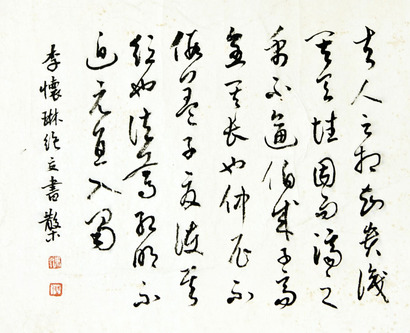 夫人之相知貴識
其天性因而濟之
禹不逼伯成子高
全其長也仲尼不
假蓋子夏護其
短也諸葛孔明不
迫元直入蜀
李懷琳絕交書